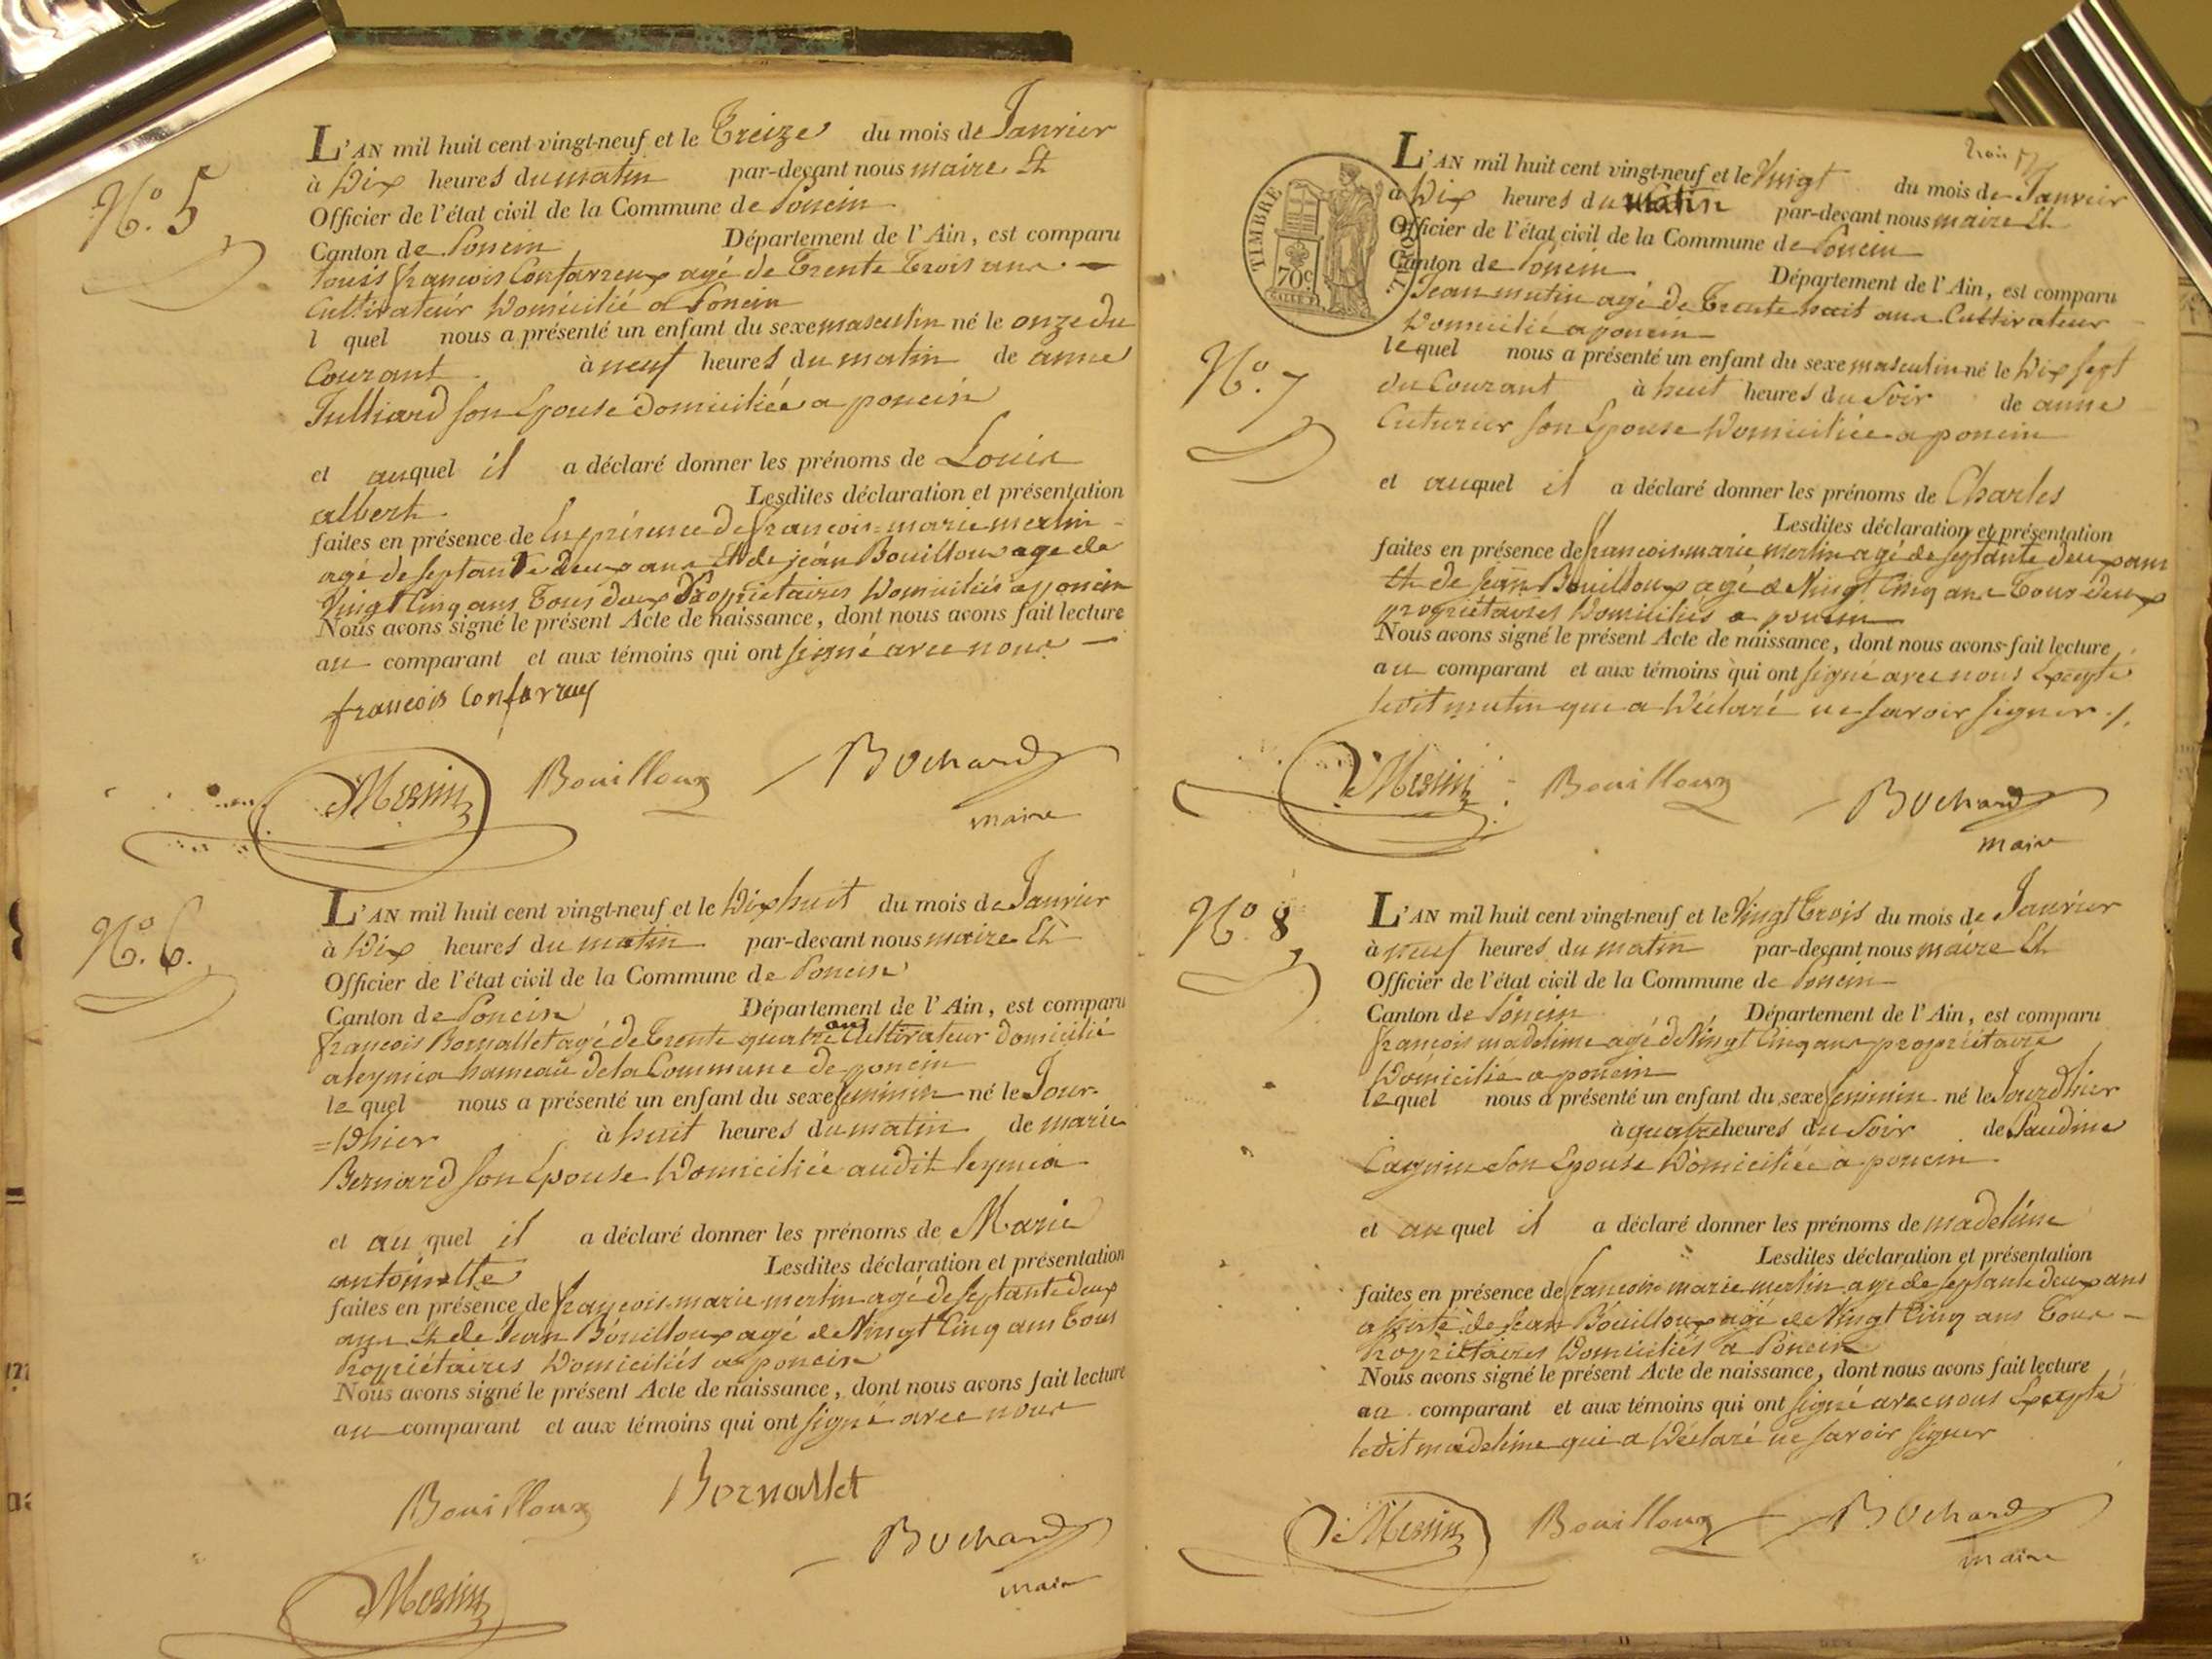 N.o 5
L'AN mil huit cent vingt-neuf et le Treize du mois de Janvier
à Dix heures du matin par-devant nous maire Et
Officier de l'état civil de la Commune de Poncin
Canton de Poncin Département de l'Ain, est comparu
Louis françois Confavreux agé de Trente Trois ans
Cultivateur Domicilié a Poncin
l quel nous a présenté un enfant du sexe masculin né le onze du
Courant à neuf heures du matin de anne
Julliard son Epouse domiciliée a poncin
et auquel il a déclaré donner les prénoms de Louis
albert Lesdites déclaration et présentation
faites en présence de En présence de françois-marie merlin
agé de septante deux ans Et de jean Bouilloux age de
Vingt Cinq ans Tous deux Propriétaires Domiciliés a poncin
Nous avons signé le présent Acte de naissance, dont nous avons fait lecture
au comparant et aux témoins qui ont signé avec nous
françois Confavreux
Merlin Bouilloux Bochard
maire
N.o 6.
L'AN mil huit cent vingt-neuf et le Dix huit du mois de Janvier
à Dix heures du matin par-devant nous maire Et
Officier de l'état civil de la Commune de Poncin
Canton de Poncin Département de l'Ain, est comparu
françois Bornallet agé de Trente quatre ans Cultivateur domicilié
a leymia hameau de la Commune de poncin
le quel nous a présenté un enfant du sexe feminin né le Jour-
=Dhier à huit heures du matin de marie
Bernard son Epouse Domiciliée audit leymia
et au quel il a déclaré donner les prénoms de Marie
antoinette Lesdites déclaration et présentation
faites en présence de françois-marie merlin agé de septante deux
ans Et de Jean Bouilloux agé de Vingt Cinq ans Tous
Propriétaires Domiciliés a poncin
Nous avons signé le présent Acte de naissance, dont nous avons fait lecture
au comparant et aux témoins qui ont signé avec nous
Bouilloux Bornallet
Bochard
maire
Merlin
TIMBRE ROYAL
70c
N.o 7
L'AN mil huit cent vingt-neuf et le Vingt du mois de Janvier
à Dix heures du matin par-devant nous maire Et
Officier de l'état civil de la Commune de Poncin
Canton de Poncin Département de l'Ain, est comparu
Jean mutin agé de Trente huit ans Cultivateur
Domicilié a poncin
lequel nous a présenté un enfant du sexe masculin né le Dix sept
du Courant à huit heures du Soir de anne
Cuturier son Epouse Domiciliée a poncin
et auquel il a déclaré donner les prénoms de Charles
Lesdites déclaration et présentation
faites en présence de françois-marie merlin agé de septante deux ans
Et de Jean Bouilloux agé de Vingt Cinq ans Tous deux
propriétaires Domiciliés a poncin
Nous avons signé le présent Acte de naissance, dont nous avons fait lecture
au comparant et aux témoins qui ont signé avec nous Excepté
ledit mutin que a Déclaré ne savoir signer ./.
Merlin Bouilloux Bochard
maire
N.o 8
L'AN mil huit cent vingt-neuf et le Vingt Trois du mois de Janvier
à neuf heures du matin par-devant nous maire Et
Officier de l'état civil de la Commune de Poncin
Canton de Poncin Département de l'Ain, est comparu
françois madeleine agé de Vingt Cinq ans propriétaire
Domicilié a poncin
lequel nous a présenté un enfant du sexe feminin né le Jour Dhier
à quatre heures du Soir de
son Epouse Domiciliée a poncin
et au quel il a déclaré donner les prénoms de madeleine
Lesdites déclaration et présentation
faites en présence de françois-marie merlin agé de septante deux ans
de Jean Bouilloux agé de Vingt Cinq ans Tous
Propriétaires Domiciliés a Poncin
Nous avons signé le présent Acte de naissance, dont nous avons fait lecture
au comparant et aux témoins qui ont signé avec nous Excepté
ledit madeleine qui a Déclaré ne savoir signer
Merlin Bouilloux Bochard
maire